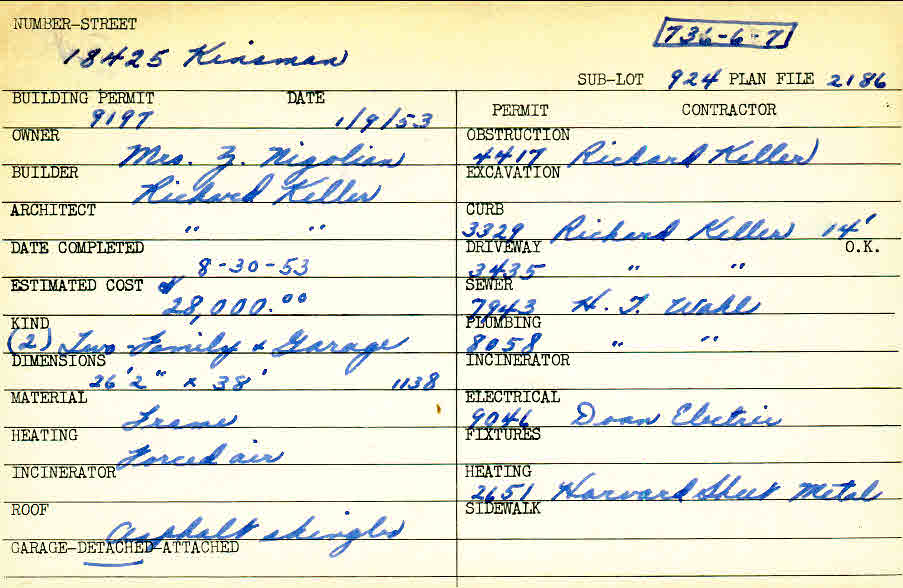 NUMBER-STREET
18425 Kinsman
736-6-7
SUB-LOT 924 PLAN FILE 2186
BUILDING PERMIT DATE
9197 1/9/53
OWNER
Mrs. Z. Nigolian
BUILDER
Richard Keller
ARCHITECT
" "
DATE COMPLETED
8-30-53
ESTIMATED COST $
28,000.00
KIND
(2) Two-Family & Garage
DIMENSIONS
26'2" x 38' 1138
MATERIAL
Frame
HEATING
Forced air
INCINERATOR
ROOF
Asphalt shingles
GARAGE-DETACHED-ATTACHED
PERMIT CONTRACTOR
OBSTRUCTION
4417 Richard Keller
EXCAVATION
CURB
3329 Richard Keller 14'
DRIVEWAY O.K.
3435 " "
SEWER
7943 H. F. Wahl
PLUMBING
8058 " "
INCINERATOR
ELECTRICAL
9046 Doan Electric
FIXTURES
HEATING
2651 Harvard Sheet Metal
SIDEWALK